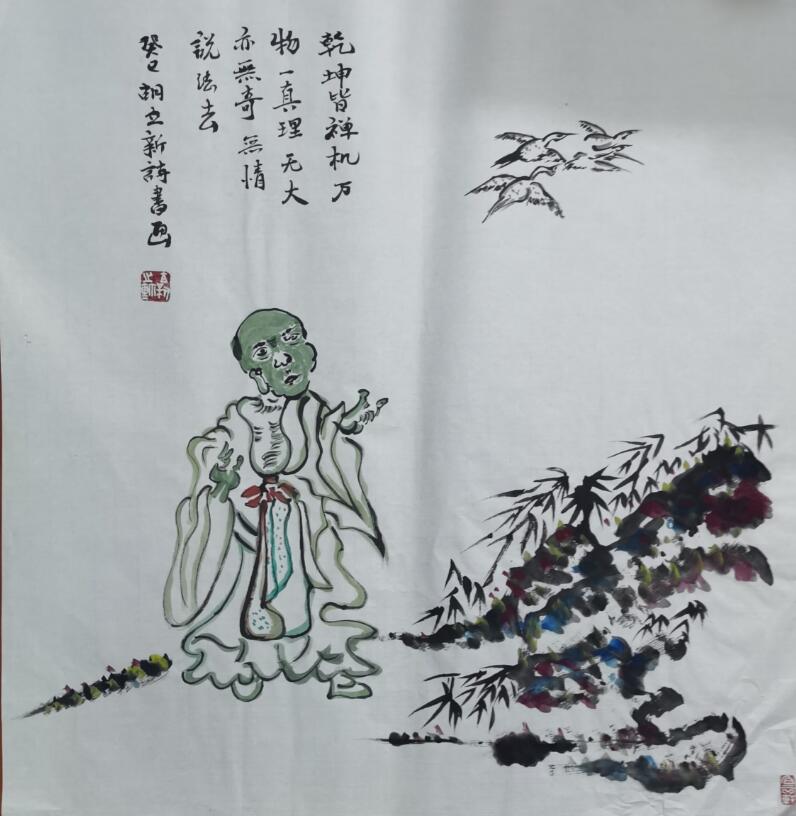 乾坤皆禅机万
物一真理无大
亦無奇無情
説法去
癸巳胡立新詩書画